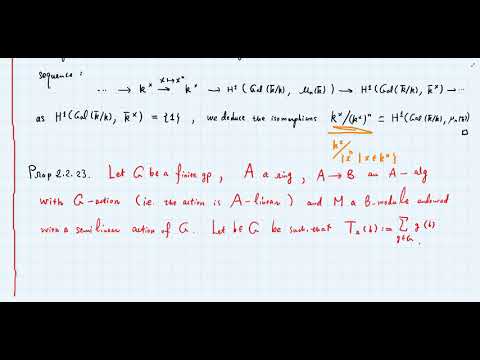 sequence :
··· → k^x —x↦x^n→ k^x → H^1 (Gal(k̄/k), μ_n(k̄)) → H^1 (Gal(k̄/k), k̄^x) → ···
as H^1 (Gal(k̄/k), k̄^x) = {1} , we deduce the isomorphism k^x/(k^x)^n ≅ H^1(Gal(k̄/k), μ_n(k̄))
k^x/{x^n | x∈k^x}
Prop 2.2.23. Let G be a finite gp , A a ring , A → B an A-alg
with G-action (i.e. the action is A-linear) and M a B-module endowed
with a semilinear action of G. Let b∈G be such that T_G(b) := Σ_{g∈G} g(b)